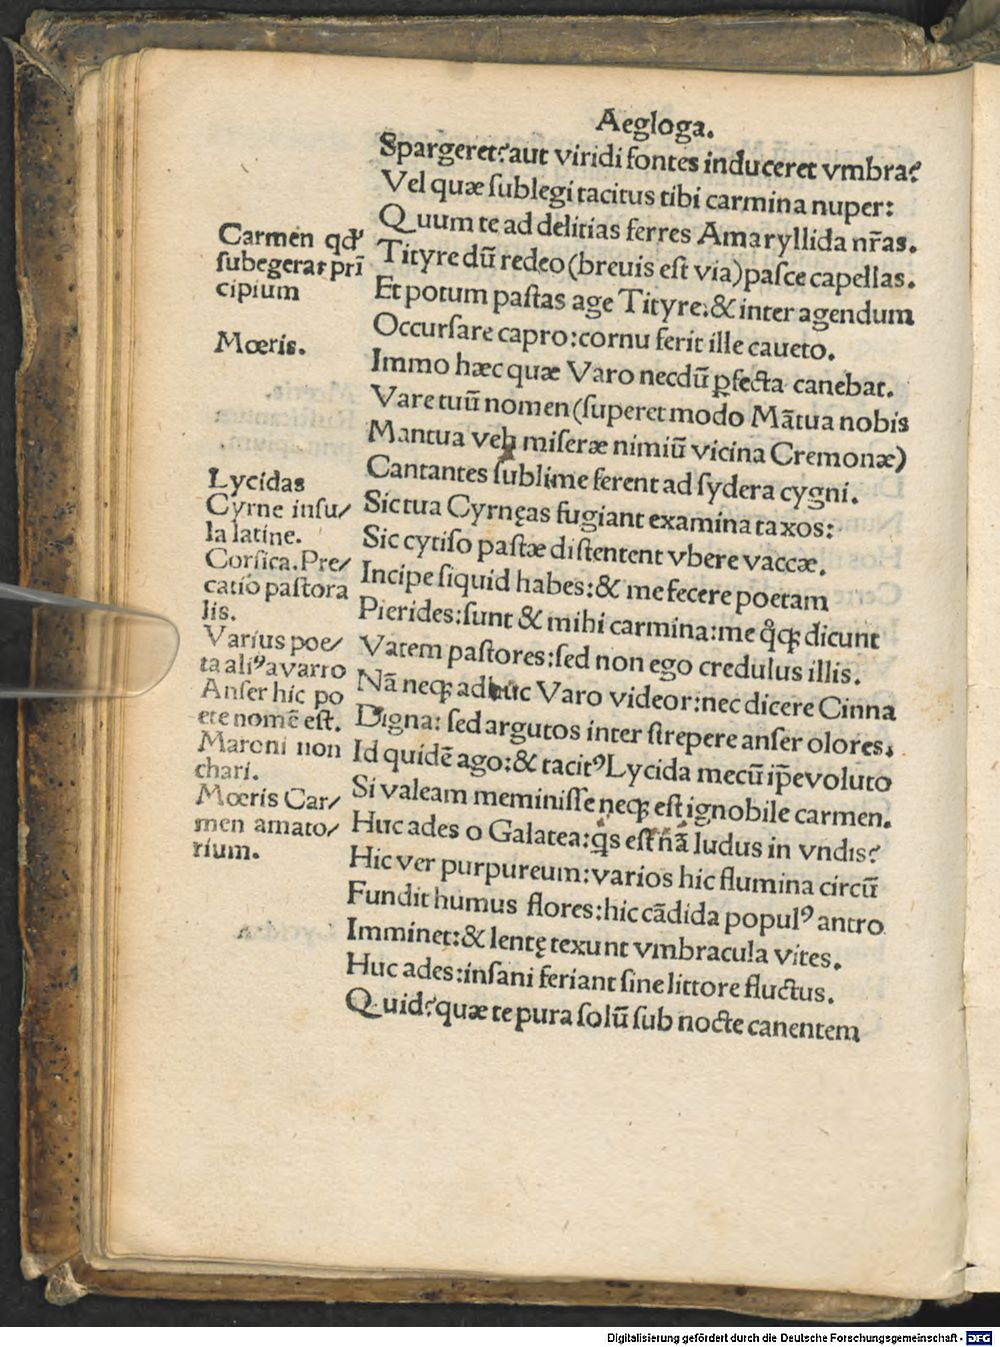 Aegloga.
Spargeret? aut viridi fontes induceret vmbra?
Vel quæ sublegi tacitus tibi carmina nuper:
Quum te ad delitias ferres Amaryllida nr̃as.
Tityre dũ redeo (breuis est via) pasce capellas.
Et potum pastas age Tityre: & inter agendum
Occursare capro: cornu ferit ille caueto.
Immo hæc quæ Varo necdũ ꝑfecta canebat.
Vare tuũ nomen (superet modo Mãtua nobis
Mantua veh miseræ nimiũ vicina Cremonæ)
Cantantes sublime ferent ad sydera cygni.
Sic tua Cyrnęas fugiant examina taxos:
Sic cytiso pastæ distentent vbere vaccæ.
Incipe siquid habes: & me fecere poetam
Pierides: sunt & mihi carmina: me q̊qꝫ dicunt
Vatem pastores: sed non ego credulus illis.
Nã neqꝫ adhuc Varo videor: nec dicere Cinna
Digna: sed argutos inter strepere anser olores.
Id quidẽ ago: & tacitꝰ Lycida mecũ ip̃e voluto
Si valeam meminisse neqꝫ est ignobile carmen.
Huc ades o Galatea: q̃s est nã ludus in vndis?
Hic ver purpureum: varios hic flumina circũ
Fundit humus flores: hic cãdida populꝰ antro
Imminet: & lentę texunt vmbracula vites.
Huc ades: insani feriant sine littore fluctus.
Quid? quæ te pura solũ sub nocte canentem
Carmen qđ
subegerat prĩ
cipium
Mœris.
Lycidas
Cyrne insu/
la latine.
Corsica. Pre/
catio pastora
lis.
Varius poe/
ta aliꝰ a varro
Anser hic po
ete nomẽ est.
Maroni non
chari.
Mœris Car/
men amato/
rium.
Digitalisierung gefördert durch die Deutsche Forschungsgemeinschaft - DFG